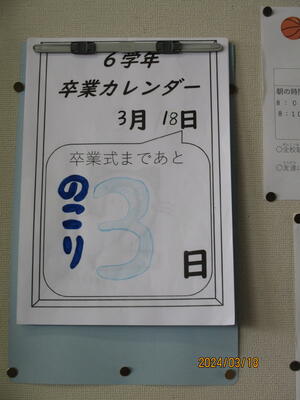 6学年
卒業カレンダー
3月 18日
卒業式まであと
のこり
3
日
朝の時
8:0
8:10
○全校
○友達に
2024/03/18